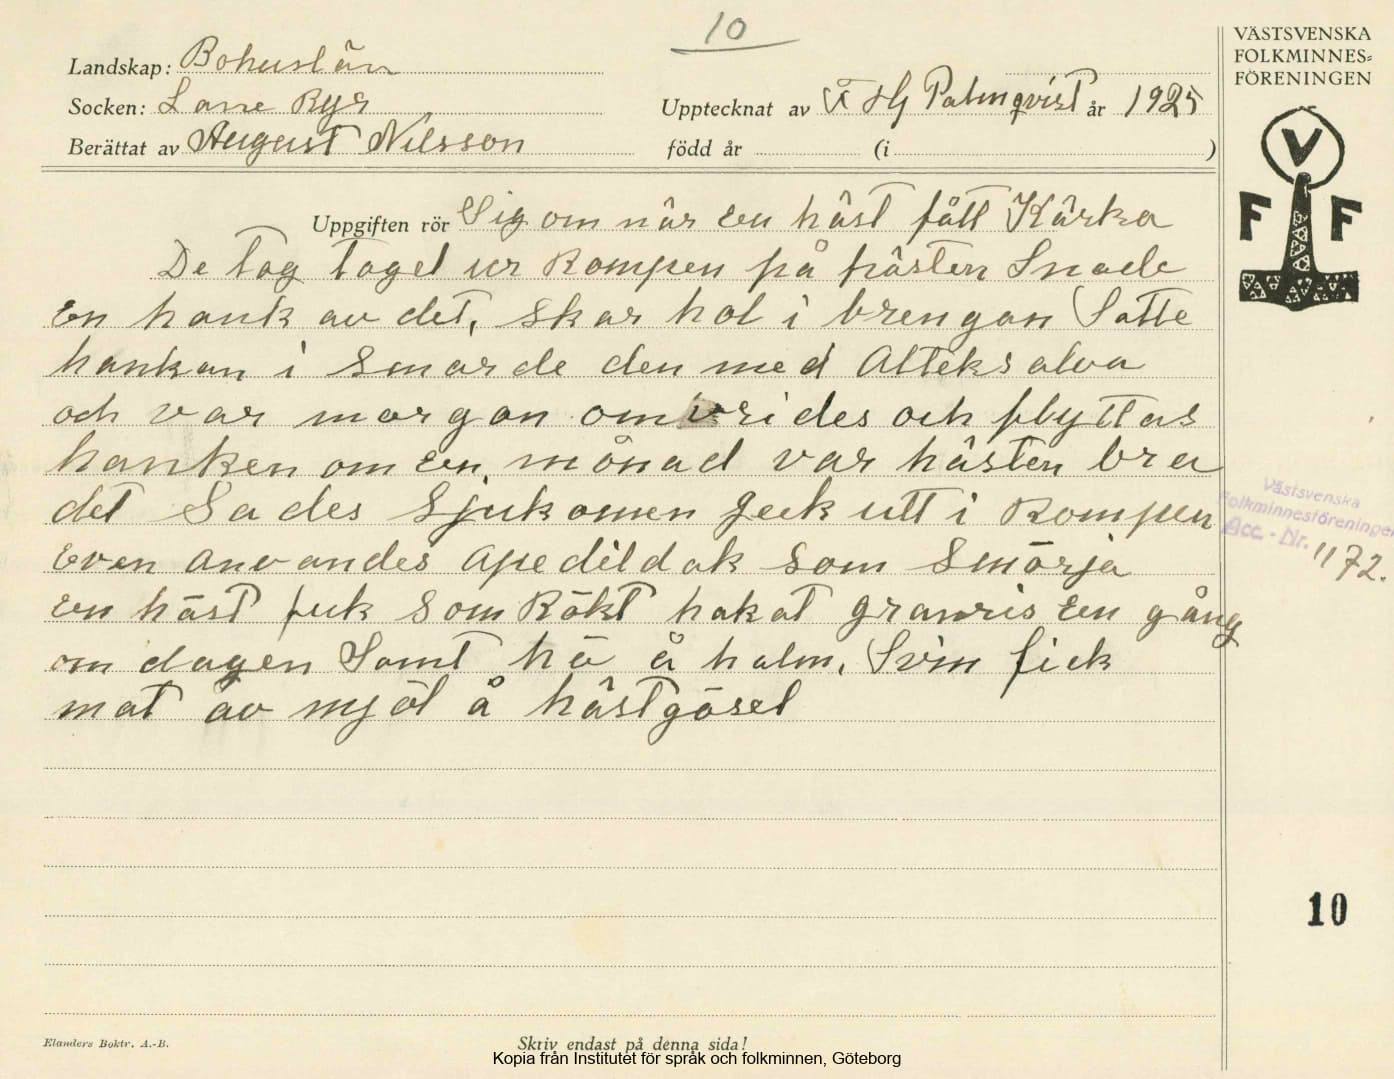 10
Landskap: Bohuslän
Socken: Lane Ryr
Berättat av August Nilsson
Upptecknat av F Hj Palmqvist år 1925
född år (i )
VÄSTSVENSKA
FOLKMINNES=
FÖRENINGEN
V
F F
Uppgiften rör Sig om när en häst fått Kärka
De tog taget ur Rompen på hästen Snade
en hank av det, skar hol i brengan Satte
hankan i Smorde den med Alteksalva
och var morgon omvrides och flyttas
hanken om en månad var hästen bra
det Sades Sjukomen geck utt i Rompen
Even anvandes apedildok som Smörja
en häst fick som Rökt hakat granris en gång
om dagen Samt hö å halm. Svin fick
mat av mjöl å hästgösel
Västsvenska
Folkminnesföreningen
Acc. - Nr. 1172.
10
Elanders Boktr. A.-B.
Skriv endast på denna sida!
Kopia från Institutet för språk och folkminnen, Göteborg